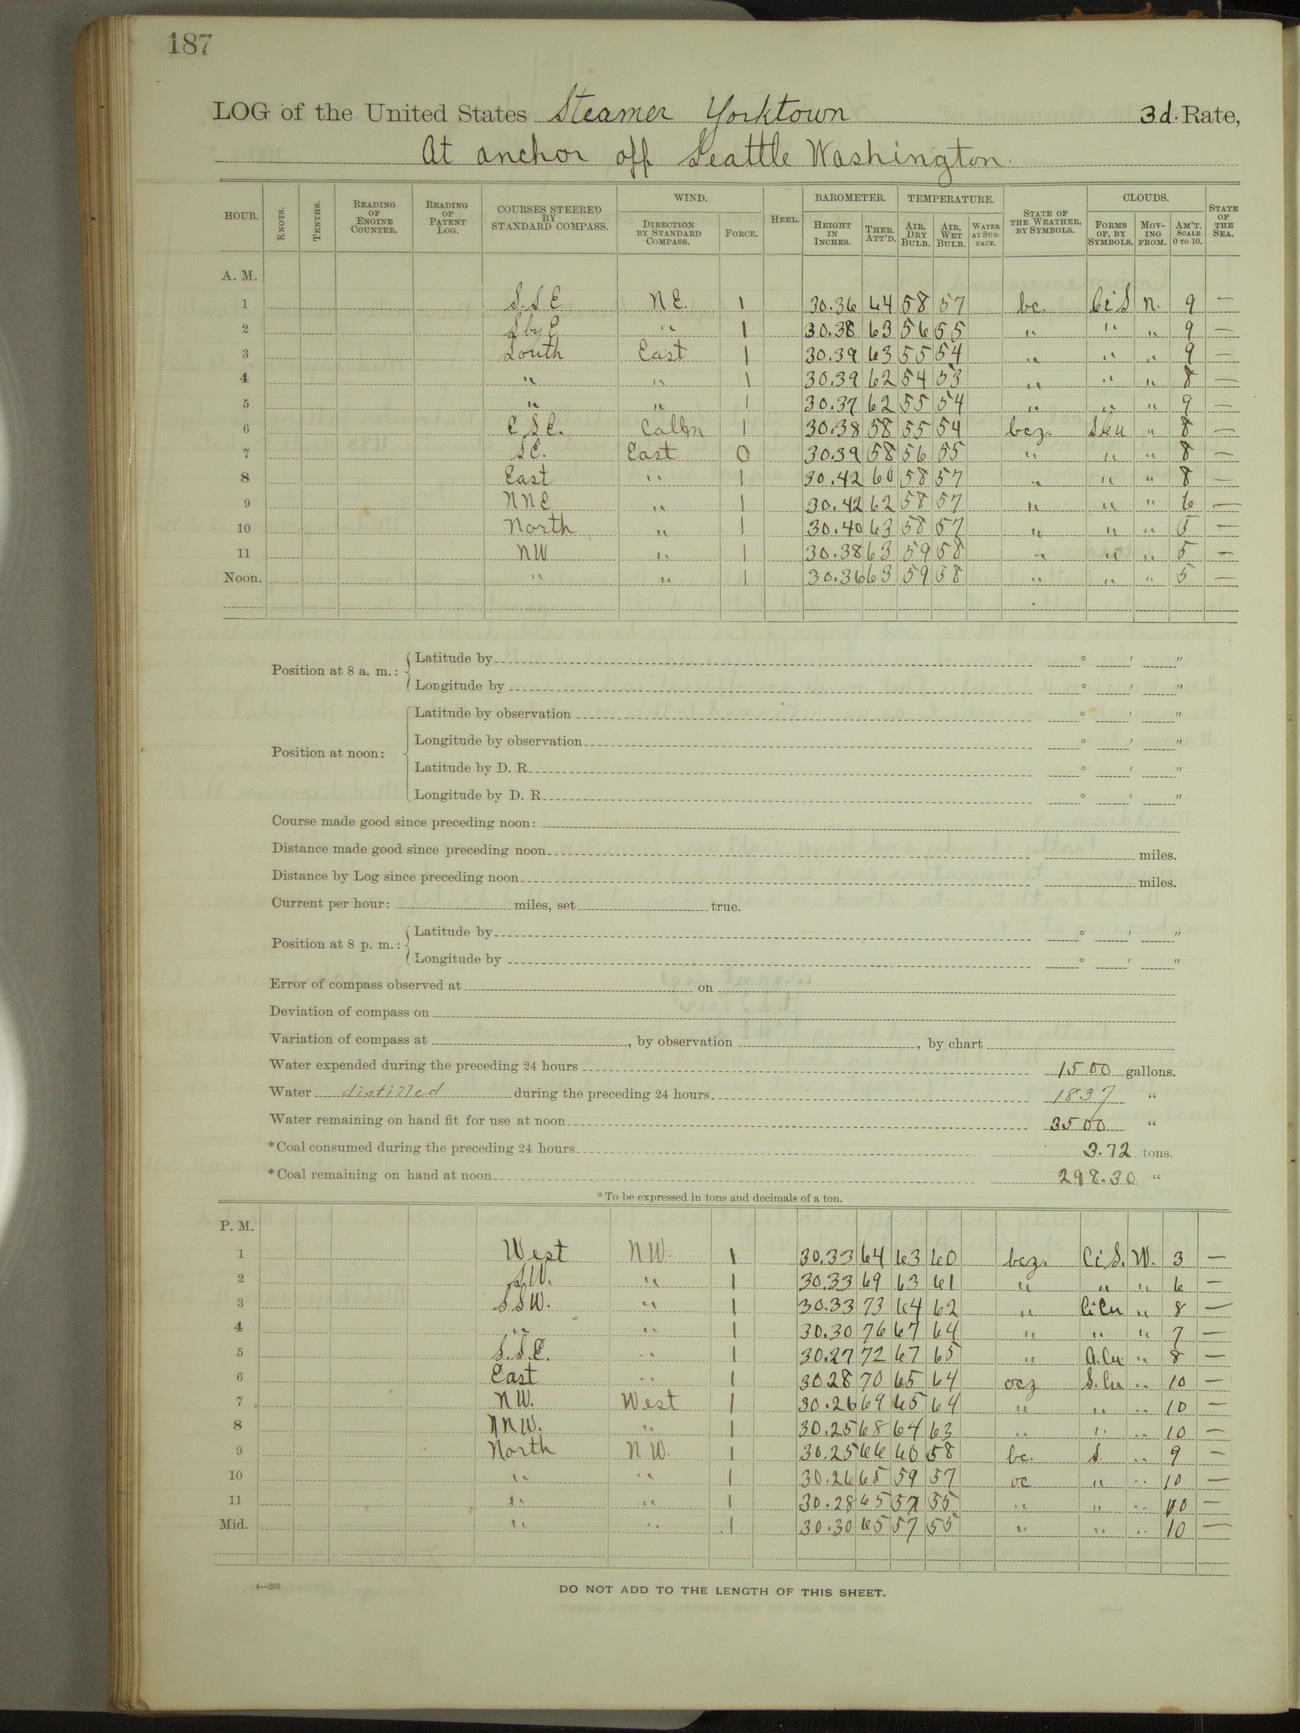 187
LOG of the United States Steamer Yorktown 3d. Rate,
At anchor off Seattle Washington.
HOUR. KNOTS. TENTHS. READING OF ENGINE COUNTER. READING OF PATENT LOG. COURSES STEERED BY STANDARD COMPASS. WIND. DIRECTION BY STANDARD COMPASS. FORCE. HEEL. BAROMETER. HEIGHT IN INCHES. THER. ATT'D. TEMPERATURE. AIR, DRY BULB. AIR, WET BULB. WATER AT SURFACE. STATE OF THE WEATHER, BY SYMBOLS. CLOUDS. FORMS OF, BY SYMBOLS. MOVING FROM. AM'T, SCALE 0 TO 10. STATE OF THE SEA.
A. M.
1 S.S.E N.E. 1 30.36 64 58 57 bc. Ci S N. 9 —
2 S by E " 1 30.38 63 56 55 " " " 9 —
3 South East 1 30.39 63 55 54 " " " 9 —
4 " " 1 30.39 62 54 53 " " " 8 —
5 " " 1 30.37 62 55 54 " " " 9 —
6 E.S.E. Calm 1 30.38 58 55 54 bcz. S Cu " 8 —
7 SE. East 0 30.39 58 56 55 " " " 8 —
8 East " 1 30.42 60 58 57 " " " 8 —
9 NNE " 1 30.42 62 58 57 " " " 6 —
10 North " 1 30.40 63 58 57 " " " 5 —
11 NW " 1 30.38 63 59 58 " " " 5 —
Noon. " " 1 30.36 63 59 58 " " " 5 —
Position at 8 a. m.: Latitude by ° ' "
Longitude by ° ' "
Position at noon: Latitude by observation ° ' "
Longitude by observation ° ' "
Latitude by D. R. ° ' "
Longitude by D. R. ° ' "
Course made good since preceding noon:
Distance made good since preceding noon miles.
Distance by Log since preceding noon miles.
Current per hour: miles, set true.
Position at 8 p. m.: Latitude by ° ' "
Longitude by ° ' "
Error of compass observed at on
Deviation of compass on
Variation of compass at , by observation , by chart
Water expended during the preceding 24 hours 1500 gallons.
Water distilled during the preceding 24 hours 1837 "
Water remaining on hand fit for use at noon 3500 "
*Coal consumed during the preceding 24 hours 3.72 tons.
*Coal remaining on hand at noon 298.30 "
*To be expressed in tons and decimals of a ton.
P. M.
1 West NW. 1 30.33 64 63 60 bcz. Ci S. W. 3 —
2 SW. " 1 30.33 69 63 61 " " " 6 —
3 SSW. " 1 30.33 73 64 62 " Ci Cu " 8 —
4 " " 1 30.30 76 67 64 " " " 7 —
5 S.S.E. " 1 30.27 72 67 65 " A. Cu " 8 —
6 East " 1 30.28 70 65 64 ocz S. Cu " 10 —
7 NW. West 1 30.26 69 65 64 " " " 10 —
8 NNW. " 1 30.25 68 64 63 " " " 10 —
9 North NW. 1 30.25 66 60 58 bc. S. " 9 —
10 " " 1 30.26 65 59 57 oc " " 10 —
11 " " 1 30.28 65 57 55 " " " 10 —
Mid. " " 1 30.30 65 57 55 " " " 10 —
4—265
DO NOT ADD TO THE LENGTH OF THIS SHEET.